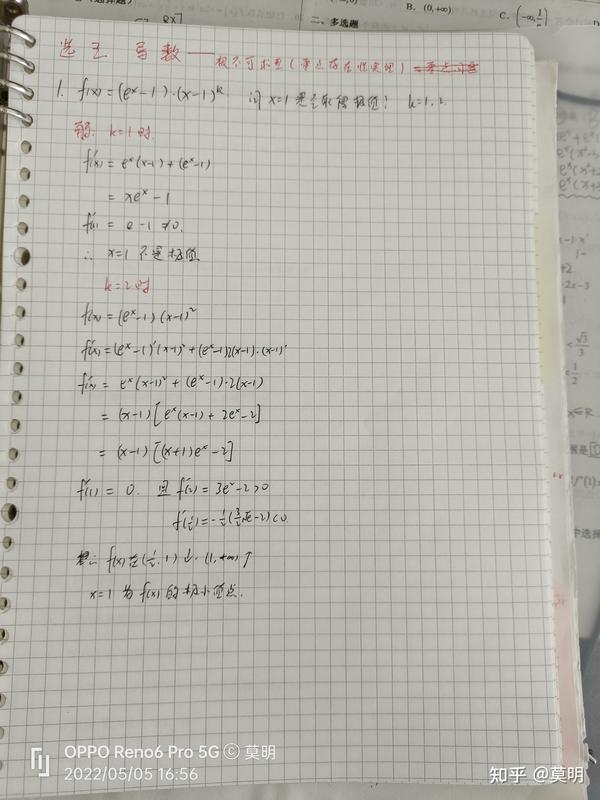 B. (0,+∞)
C. (-∞,
二、多选题
选主 导数——极不可求型(零点存在性定理)
1. f(x)=(eˣ-1)·(x-1)ᵏ 问 x=1 是否取得极值? k=1,2
解: k=1时
f'(x)=eˣ(x-1)+(eˣ-1)
=xeˣ-1
f'(1)=e-1≠0.
∴ x=1 不是极值
k=2时
f(x)=(eˣ-1)(x-1)²
f'(x)=(eˣ-1)'(x-1)²+(eˣ-1)2(x-1)·(x-1)'
f'(x)=eˣ(x-1)²+(eˣ-1)·2(x-1)
=(x-1)[eˣ(x-1)+2eˣ-2]
=(x-1)[(x+1)eˣ-2]
f'(1)=0. 且 f'(2)=3e²-2>0
f'(½)=-½(3/2√e-2)<0
∴ f(x)在(½,1)↓.(1,+∞)↑
x=1 为 f(x) 的极小值点.
OPPO Reno6 Pro 5G ⓒ 莫明
2022/05/05 16:56
知乎 @莫明